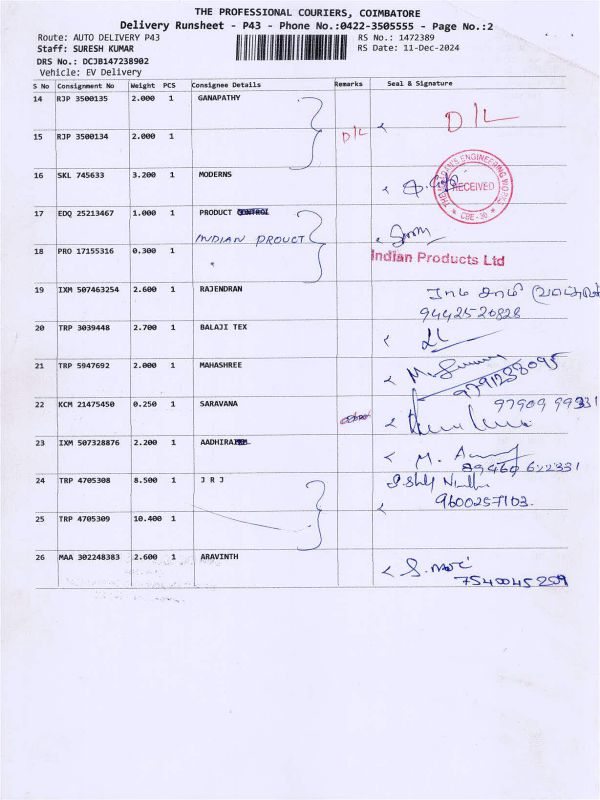 THE PROFESSIONAL COURIERS, COIMBATORE
Delivery Runsheet - P43 - Phone No.:0422-3505555 - Page No.:2
Route: AUTO DELIVERY P43 RS No.: 1472389
Staff: SURESH KUMAR RS Date: 11-Dec-2024
DRS No.: DCJB147238902
Vehicle: EV Delivery
S No Consignment No Weight PCS Consignee Details Remarks Seal & Signature
14 RJP 3500135 2.000 1 GANAPATHY
D/L D/L
15 RJP 3500134 2.000 1
16 SKL 745633 3.200 1 MODERNS
ENGINEERING WORKS
RECEIVED
CBE - 30
17 EDQ 25213467 1.000 1 PRODUCT CONTROL
INDIAN PROUCT
18 PRO 17155316 0.300 1 Indian Products Ltd
19 IXM 507463254 2.600 1 RAJENDRAN
9442520828
20 TRP 3039448 2.700 1 BALAJI TEX
21 TRP 5947692 2.000 1 MAHASHREE
9791238095
22 KCM 21475450 0.250 1 SARAVANA
97909 99331
23 IXM 507328876 2.200 1 AADHIRA
89460 622331
24 TRP 4705308 8.500 1 J R J
9600257103.
25 TRP 4705309 10.400 1
26 MAA 302248383 2.600 1 ARAVINTH
7540045259